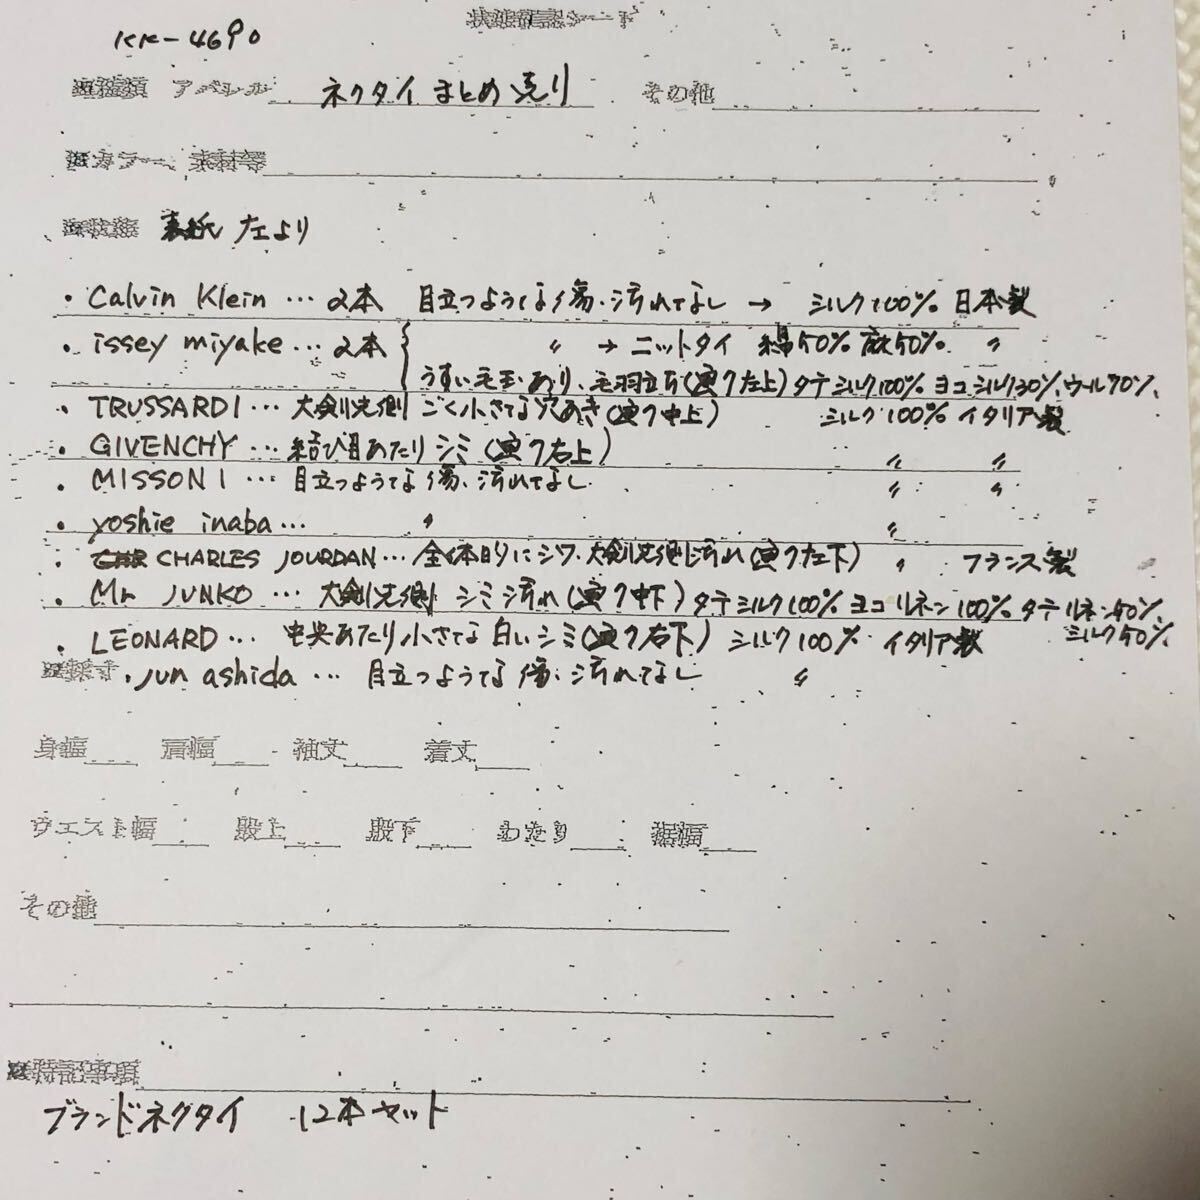 KK-4690
状態確認シート
アパレル ネクタイ まとめ売り その他
カラー 素材等
表紙 左より
・Calvin Klein … 2本 目立つような傷、汚れなし → シルク100% 日本製
・issey miyake … 2本 { 〃 → ニットタイ 綿50% 麻50% 〃
うすい毛玉あり、毛羽立ち(裏ク左上) タテ シルク100% ヨコ シルク30%、ウール70%、
・TRUSSARDI … 大剣先側 ごく小さな穴あき(裏ク中上) シルク100% イタリア製
・GIVENCHY … 結び目あたり シミ(裏ク右上) 〃 〃
・MISSONI … 目立つような傷、汚れなし 〃 〃
・yoshie inaba … 〃 〃
・CHARLES JOURDAN … 全体的にシワ、大剣先側汚れ(裏ク左下) 〃 フランス製
・Mr JUNKO … 大剣先側 シミ汚れ(裏ク中下) タテ シルク100% ヨコ リネン100% タテ リネン50%、
シルク50%、
・LEONARD … 中央あたり小さな白いシミ(裏ク右下) シルク100% イタリア製
・Jun ashida … 目立つような傷、汚れなし 〃
身幅 肩幅 袖丈 着丈
ウエスト幅 股上 股下 わたり 裾幅
その他
特記事項
ブランドネクタイ 12本セット